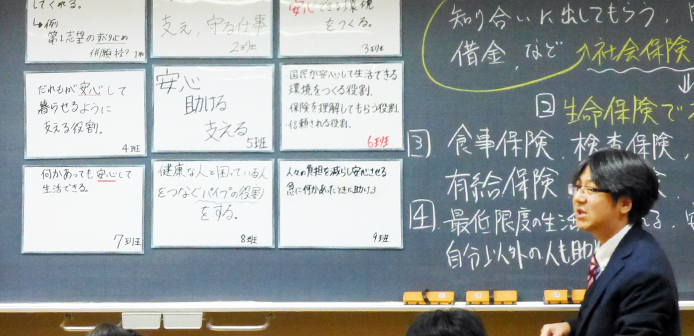 してくれる。
↳例.
第1志望のすべり止め
併願校?
支え,守る仕事
2班
をつくる。
3班
だれもが安心して
暮らせるように
支える役割。
4班
安心
助ける
支える
5班
国民が安心して生活できる
環境をつくる役割.
保険を理解してもらう役割.
信頼される役割.
6班
何かあっても安心して
生活できる。
7班
健康な人と困っている人
をつなぐパイプの役割
をする。
8班
人々の負担を減らし安心させる
急に何かあったときに助ける
9班
知り合いに出してもらう,
借金,など
社会保険
2 生命保険で
3 食事保険、検査保険,
有給保険
4 最低限度の生活
自分以外の人も助